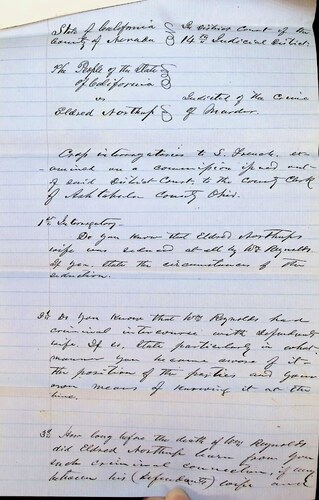 State of California } In District Court of the
County of Nevada } 14th Judicial District.
The People of the State
of California
vs } Indicted of the Crime
Eldred Northup } of Murder.
Cross interrogatories to S. French, ex-
amined on a commission issued out
of said District Court, to the County Clerk
of Ashtabula County Ohio.
1st Interrogatory.
Do you know that Eldred Northups
wife was seduced at all by Wm Reynolds.
If yea, state the circumstances of the
seduction.
2d Do you Know that Wm Reynolds had
criminal intercourse with defendants
wife. If so, State particularly in what
manner you became aware of it—
the position of the parties and your
own means of knowing it at the
time.
3d How long before the death of Wm Reynolds
did Eldred Northup learn from you
such criminal connection, if any
between his (defendants) wife and